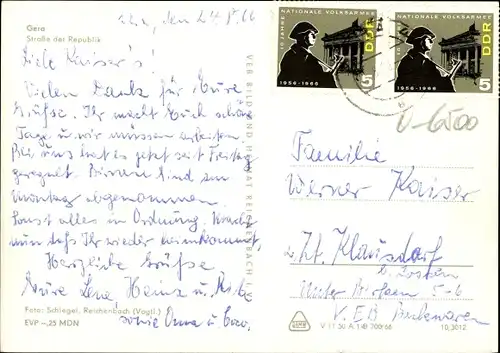 Gera
Straße der Republik
den 24.8.66
Liebe Kaiser's!
Vielen Dank für Eure
Grüße. Ihr macht Euch schöne
Tage u. wir müssen arbeiten
Bei uns hat es jetzt seit Freitag
geregnet. Birnen sind am
Montag abgenommen.
Sonst alles in Ordnung.
nun daß Ihr wieder heimkommt.
Herzliche Grüße
Eure Lena, Heinz u.
sowie Oma u.
Foto: Schlegel, Reichenbach (Vogtl.)
EVP –,25 MDN
VEB BILD UND HEIMAT REICHENBACH
10 JAHRE NATIONALE VOLKSARMEE
DDR
1956-1966
5
10 JAHRE NATIONALE VOLKSARMEE
DDR
1956-1966
5
U-6500
Familie
Werner Kaiser
z. Zt. Klausdorf
b. Zossen
Unter Birken 5-6
V. EB
V 11 50 A 1/B 700/66
10,3012